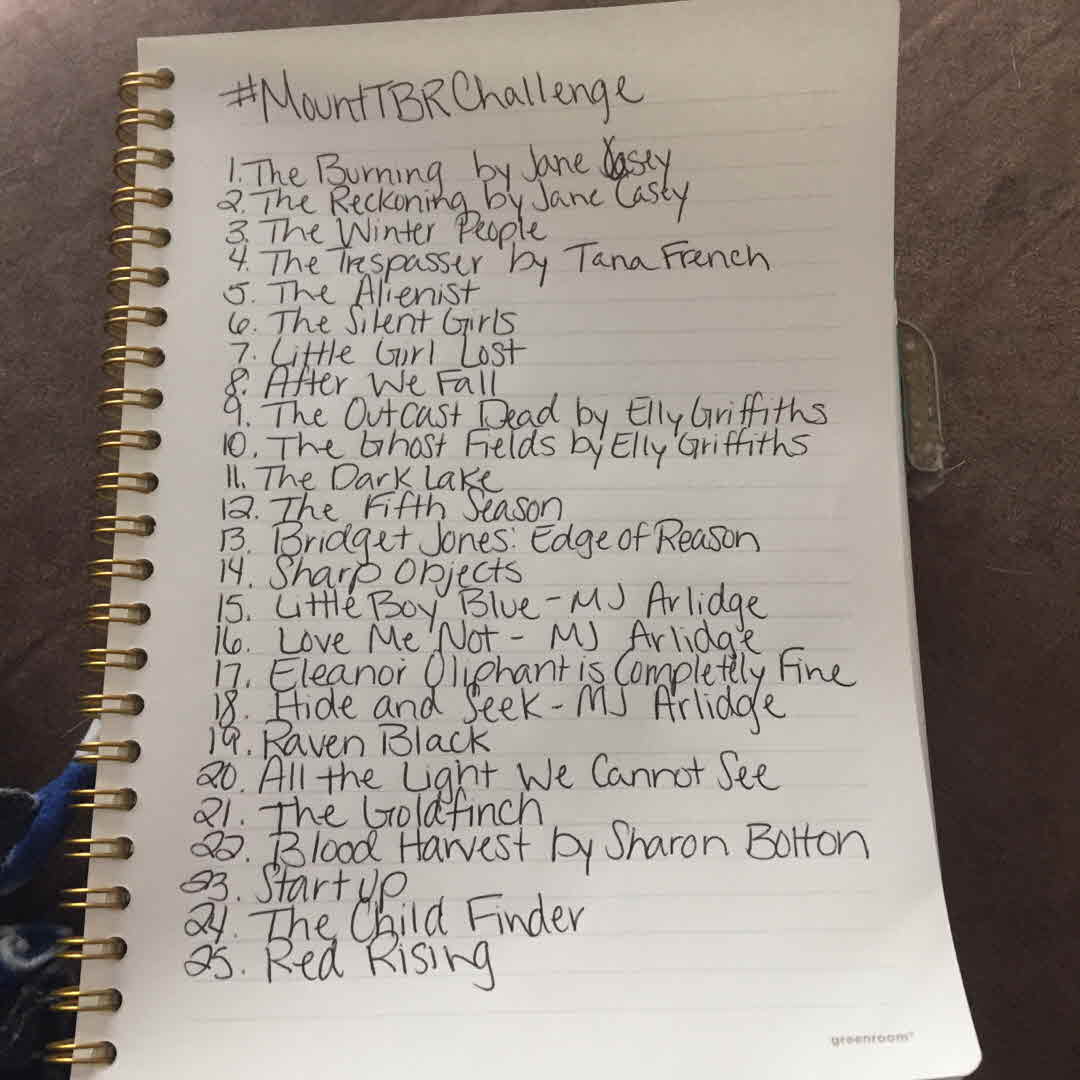 #MountTBRChallenge
1. The Burning by Jane Casey
2. The Reckoning by Jane Casey
3. The Winter People
4. The Trespasser by Tana French
5. The Alienist
6. The Silent Girls
7. Little Girl Lost
8. After We Fall
9. The Outcast Dead by Elly Griffiths
10. The Ghost Fields by Elly Griffiths
11. The Dark Lake
12. The Fifth Season
13. Bridget Jones: Edge of Reason
14. Sharp Objects
15. Little Boy Blue - MJ Arlidge
16. Love Me Not - MJ Arlidge
17. Eleanor Oliphant is Completely Fine
18. Hide and Seek - MJ Arlidge
19. Raven Black
20. All the Light We Cannot See
21. The Goldfinch
22. Blood Harvest by Sharon Bolton
23. Startup
24. The Child Finder
25. Red Rising
greenroom